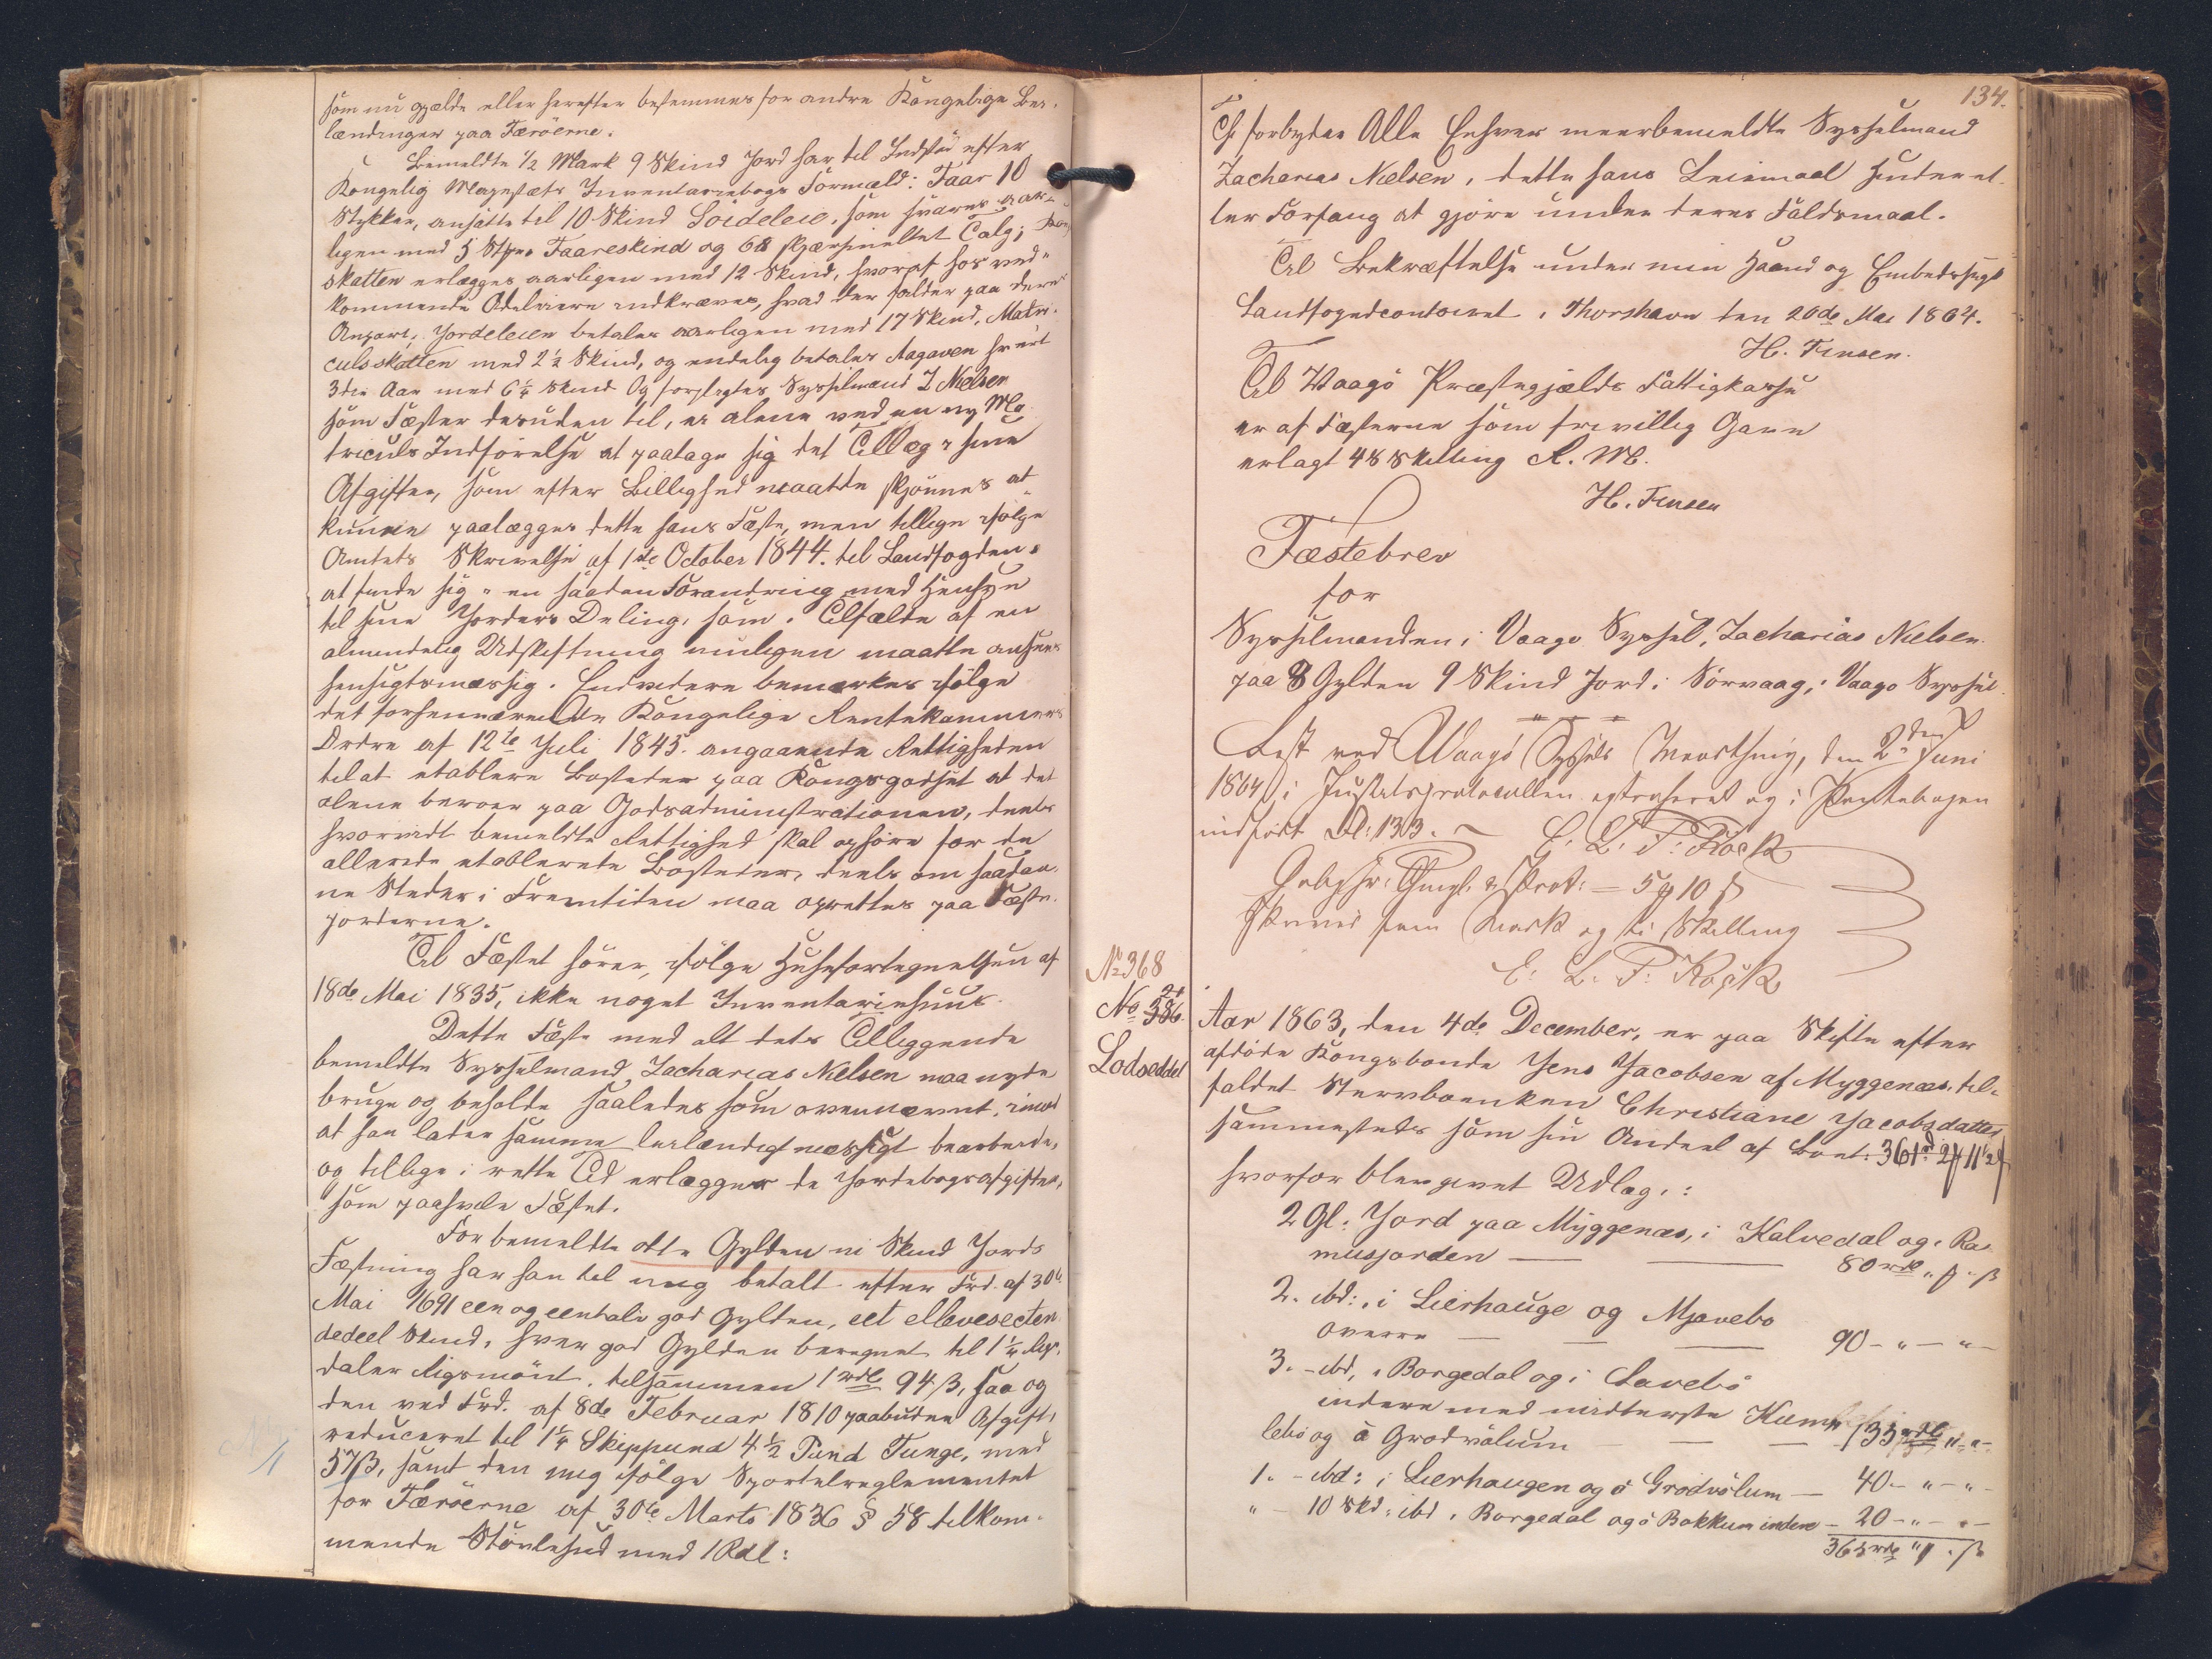 som nu gjelde eller herefter bestemmes for andre Kongelige Bei-
lændinger paa Færöerne.
Bemeldte 1/2 Mark 9 Skind Jord har til Indstæd efter
Kongelig Majestæts Inventariebogs Formæld: Faar 10
Stykker, ansatte til 10 Skind Söideleie, som svares aar-
ligen med 5 Stkr Faareskind og 6 ℔ skjærsmeltet Talg;
skatten erlægges aarligen med 12 Skind, hvoraf hos ved-
kommende Odelseiere indkræves, hvad der falder paa deres
Anpart; Jordeleien betales aarligen med 17 Skind, Matri-
culsskatten med 2 1/2 Skind, og endelig betales Aagaven hvert
3die Aar med 6 1/4 Skind Og forpligtes Sysselmand Z Nielsen
som Fæster desuden til, ei alene ved en ny Ma-
triculs Indförelse at paatage sig det Tillæg i sine
Afgifter, som efter Billighed maatte skjönnes at
kunne paalægges dette hans Fæste, men tillige ifölge
Amtets Skrivelse af 1ste October 1844. til Landfogden,
at finde sig i en saadan Forandring med Hensyn
til sine Jorders Deling, som i Tilfælde af en
almindelig Udskiftning muligen maatte ansees
hensigtsmæssig. Endvidere bemærkes ifölge
det forhenværende Kongelige Rentekammers
Ordre af 12te Juli 1845. angaaende Rettigheden
til at etablere Bosteder paa Kongsgodset at det
alene beroer paa Godsadministrationen, deels
hvorvidt bemeldte Rettighed skal ophöre for de
allerede etablerede Bosteder, deels om saadan-
ne Steder i Fremtiden maa oprettes paa Fæste-
jorderne.
Til Fæstet hörer, ifölge Huusfortegnelsen af
18de Mai 1835, ikke noget Inventariehuus.
Dette Fæste med alt dets Tilliggende
bemeldte Sysselmand Zacharias Nielsen maa nyde
bruge og beholde saaledes som ovennævnt, imod
at han lader samme landsmæssigt bearbeide,
og tillige i rette Tid erlægger de Jordebogsafgifter,
som paahvile Fæstet.
For bemeldte otte Gylden ni Skind Jords
Fæstning har han til mig betalt efter Frd. af 30te
Mai 1691 een og eenhalv god Gylden, eet ellevesecten-
dedeel Skind, hver god Gylden beregnet til 1 1/4 Rigs-
daler Rigsmönt, tilsammen 1 rdl 94 ß, saa og
den ved Frd. af 8de Februar 1810 paabudne Afgift,
reduceret til 1 1/4 Skippund 4 1/2 Pund Tunge, med
57 ß, samt den mig ifölge Sportelreglementet
for Færöerne af 30te Marts 1836 § 58 tilkom-
mende Stövlehud med 1 Rdl:
134.
Thi forbydes Alle Enhver meerbemeldte Sysselmand
Zacharias Nielsen, i dette hans Leiemaal Hinder el-
ler Forfang at gjöre under deres Faldsmaal.
Til Bekræftelse under min Haand og Embedssegl
Landfogedcontoiret i Thorshavn den 20de Mai 1864.
H. Finsen.
Til Waagö Præstegjælds Fattigkasse
er af Fæsteren som frivillig Gave
erlagt 48 Skilling R. M.
H. Finsen
Fæstebrev
for
Sysselmanden i Vaagö Syssel, Zacharias Nielsen
paa 8 Gylden 9 Skind Jord i Sörvaag, i Vaagö Syssel.
Læst ved Waagö Syssels Vaarthing, den 2den Juni
1864, i Justitsprotocollen extraheret og i Pantebogen
indfört Fol: 133.
E. L. T. Kock
= 5 ₰ 10 ß
Skriver fem Mark og ti Skilling
E. L. T. Kock
No 368
No 386.
Lodseddel
Aar 1863, den 4de December, er paa Skifte efter
afdöde Kongsbonde Jens Jacobsen af Myggenæs, til-
faldet Stervboenken Christiane Jacobsdatter
sammesteds som sin Andeel af Boet: 361 rd. 2 ₰ 11 1/2 ß
hvorfor blev givet Udlæg, i:
2 Gl: Jord paa Myggenæs, i Kalvedal og i Ras-
musjorden — — 80 rdl „ ₰ „ ß
2. ibd: i Lierhauge og Mjavebö
överre — — — 90 - „ - „ -
3. - ibd, i Borgedal og i Lavebö
indere med midterste Kum-
lebö og ä Grodvölum — — — 133 rdl „ - „ -
1. - ibd: i Lierhaugen og ä Grodvölum — 40 - „ - „ -
„ - 10 Skd: ibd, i Borgedal og ä Bakkum indere - 20 - „ - „ -
363 rdl „ ₰ „ ß